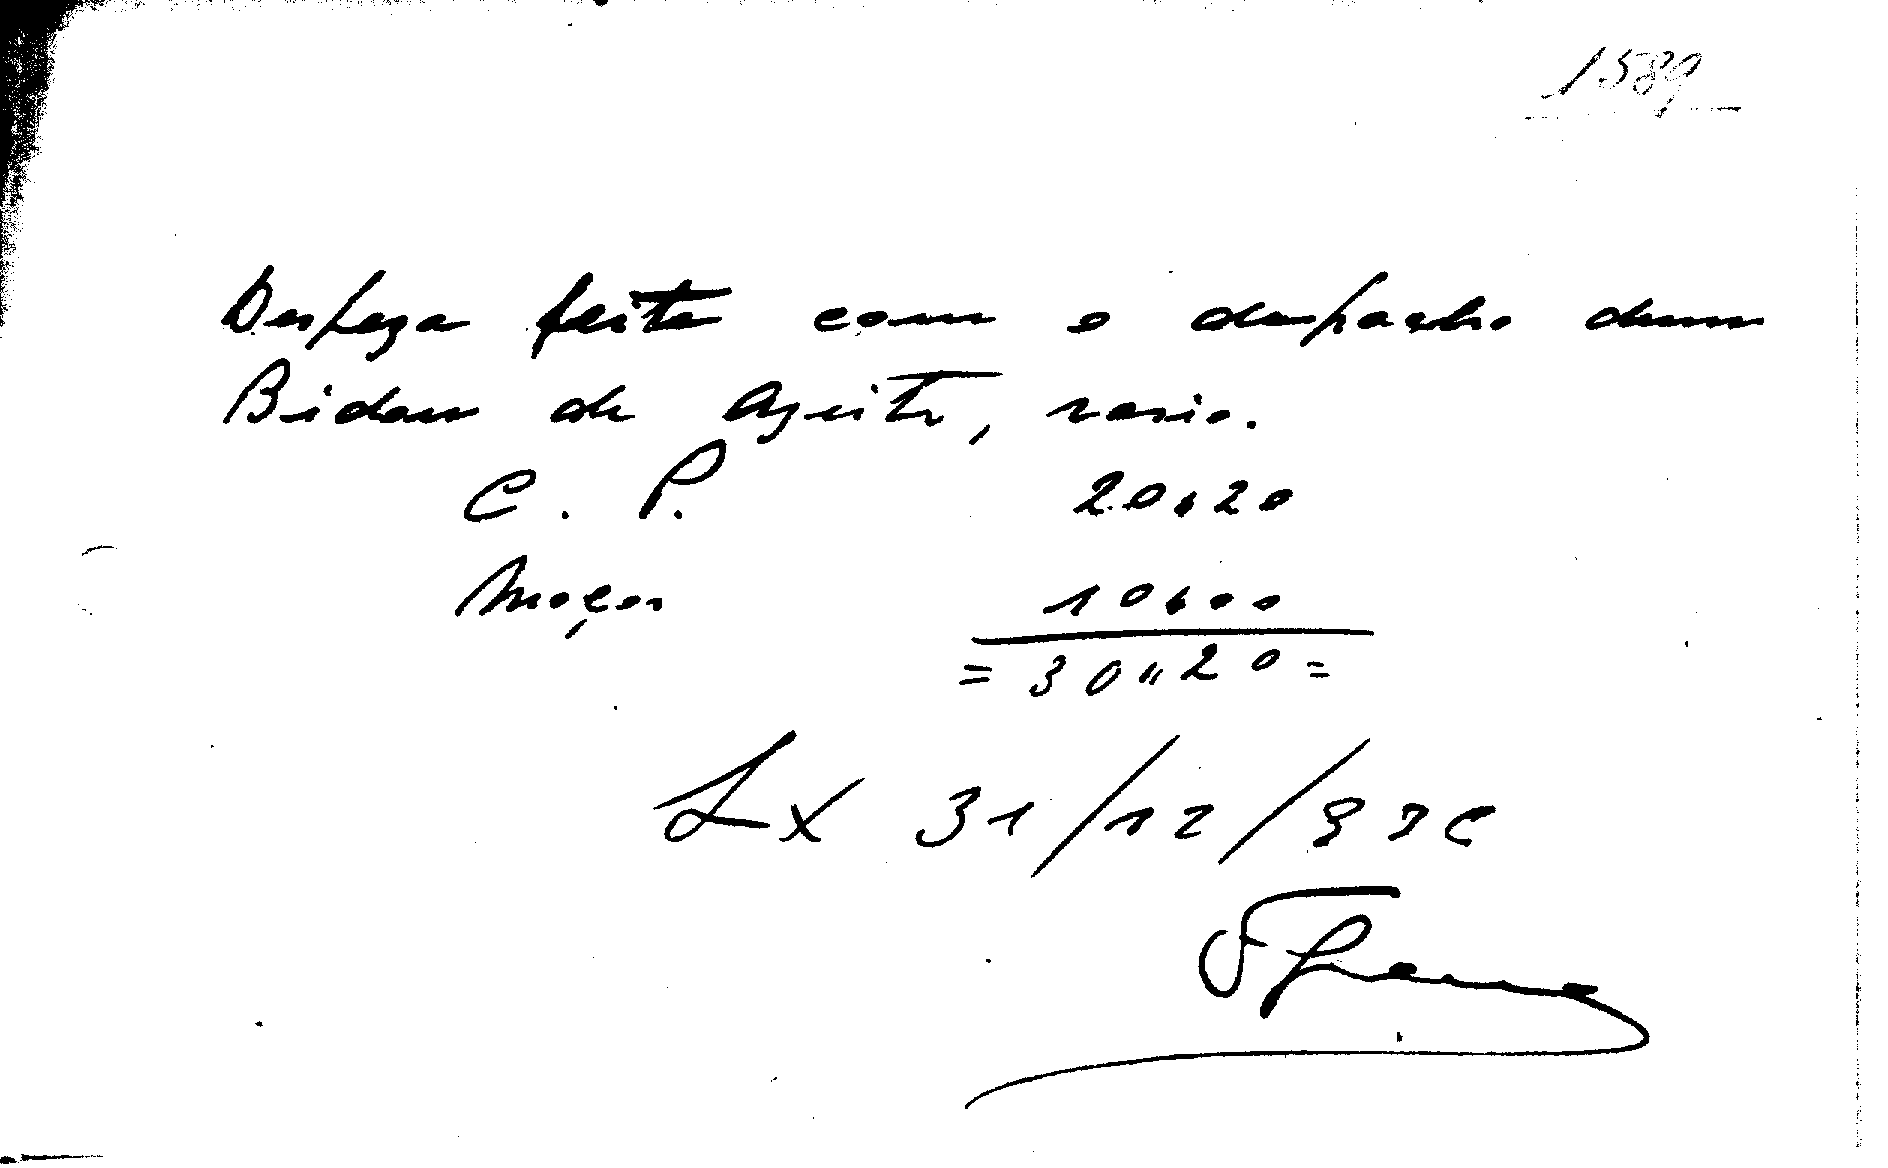 1589
Despeza feita com o despacho dum
Bidon de Azeite, vasio.
C. P. 20$20
Moços 10$00
= 30"20 =
Lx 31/12/93